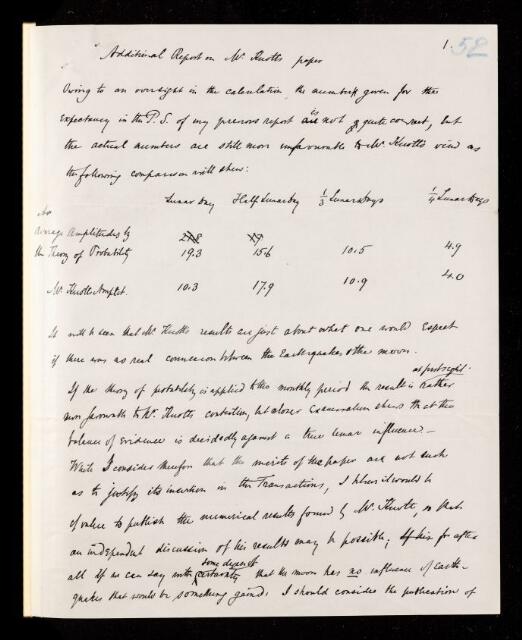 1. 52
Additional Report on Mr Knott's paper
Owing to an oversight in the calculation, the number given for the
expectancy in the P.S. of my previous report is not quite correct, but
the actual numbers are still more unfavourable to Mr Knott's view as
the following comparison will shew:
Lunar Day Half Lunar Day 1/3 Lunar Days 1/4 Lunar Days
Average Amplitudes by
the Theory of Probability 19.3 15.6 10.5 4.9
Mr Knott's Amplit. 10.3 17.9 10.9 4.0
It will be seen that Mr Knott's results are just about what one would expect
if there was no real connexion between the Earthquakes & the moon.
at first sight
If the theory of probability is applied to the monthly period the result is rather
more favourable to Mr Knott's contention, but closer examination shews that the
balance of evidence is decidedly against a true lunar influence.—
While I consider therefore that the merits of the paper are not such
as to justify its insertion in the Transactions, I think it would be
of value to publish the numerical results found by Mr Knott, so that
an independent discussion of his results may be possible; for after
some degree of
all if we can say with certainty that the moon has no influence of earth-
quakes that would be something gained. I should consider the publication of